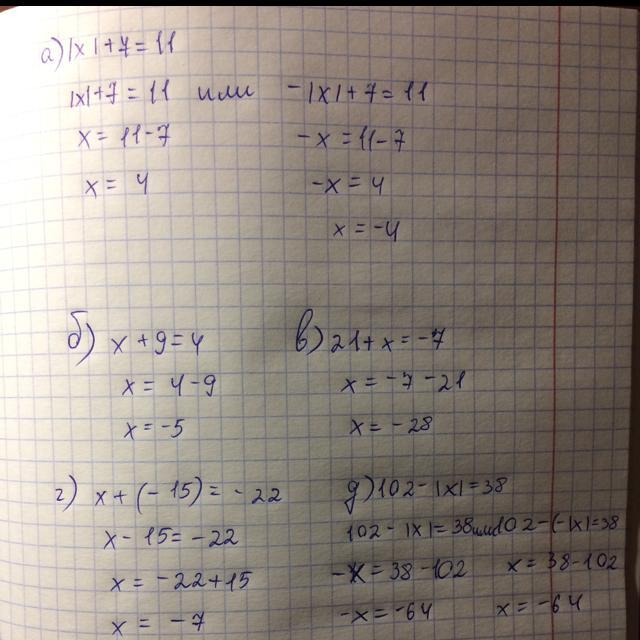 а) |x| + 7 = 11
|x| + 7 = 11 или - |x| + 7 = 11
x = 11 - 7 - x = 11 - 7
x = 4 - x = 4
x = -4
б) x + 9 = 4 в) 21 + x = -7
x = 4 - 9 x = -7 - 21
x = -5 x = -28
г) x + (- 15) = - 22 д) 102 - |x| = 38
x - 15 = - 22 102 - |x| = 38 или 102 - (-|x| = 38
x = -22 + 15 -x = 38 - 102 x = 38 - 102
x = -7 -x = -64 x = -64